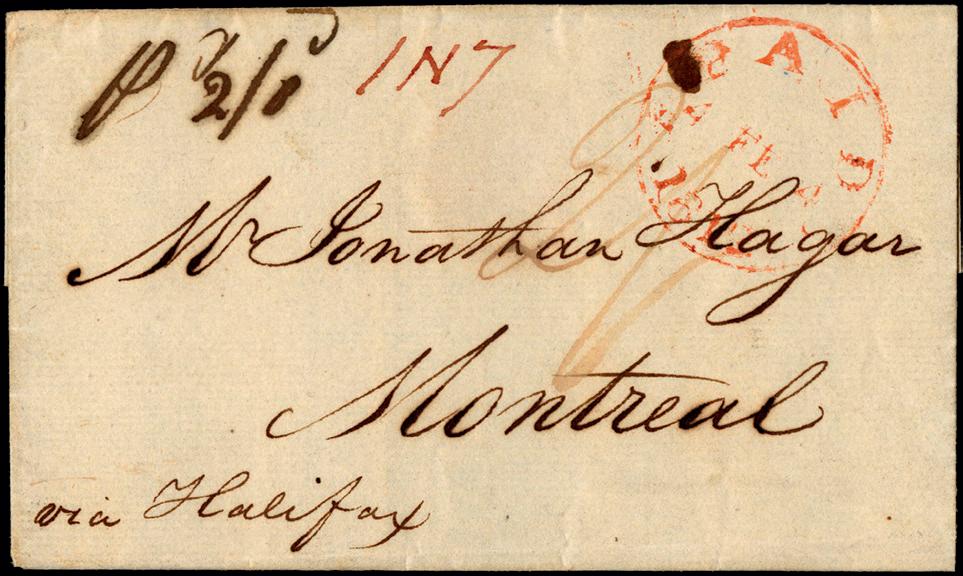 Pd 2/1d
1N7
PAID
FE
Mr Jonathan Hagar
Montreal
via Halifax